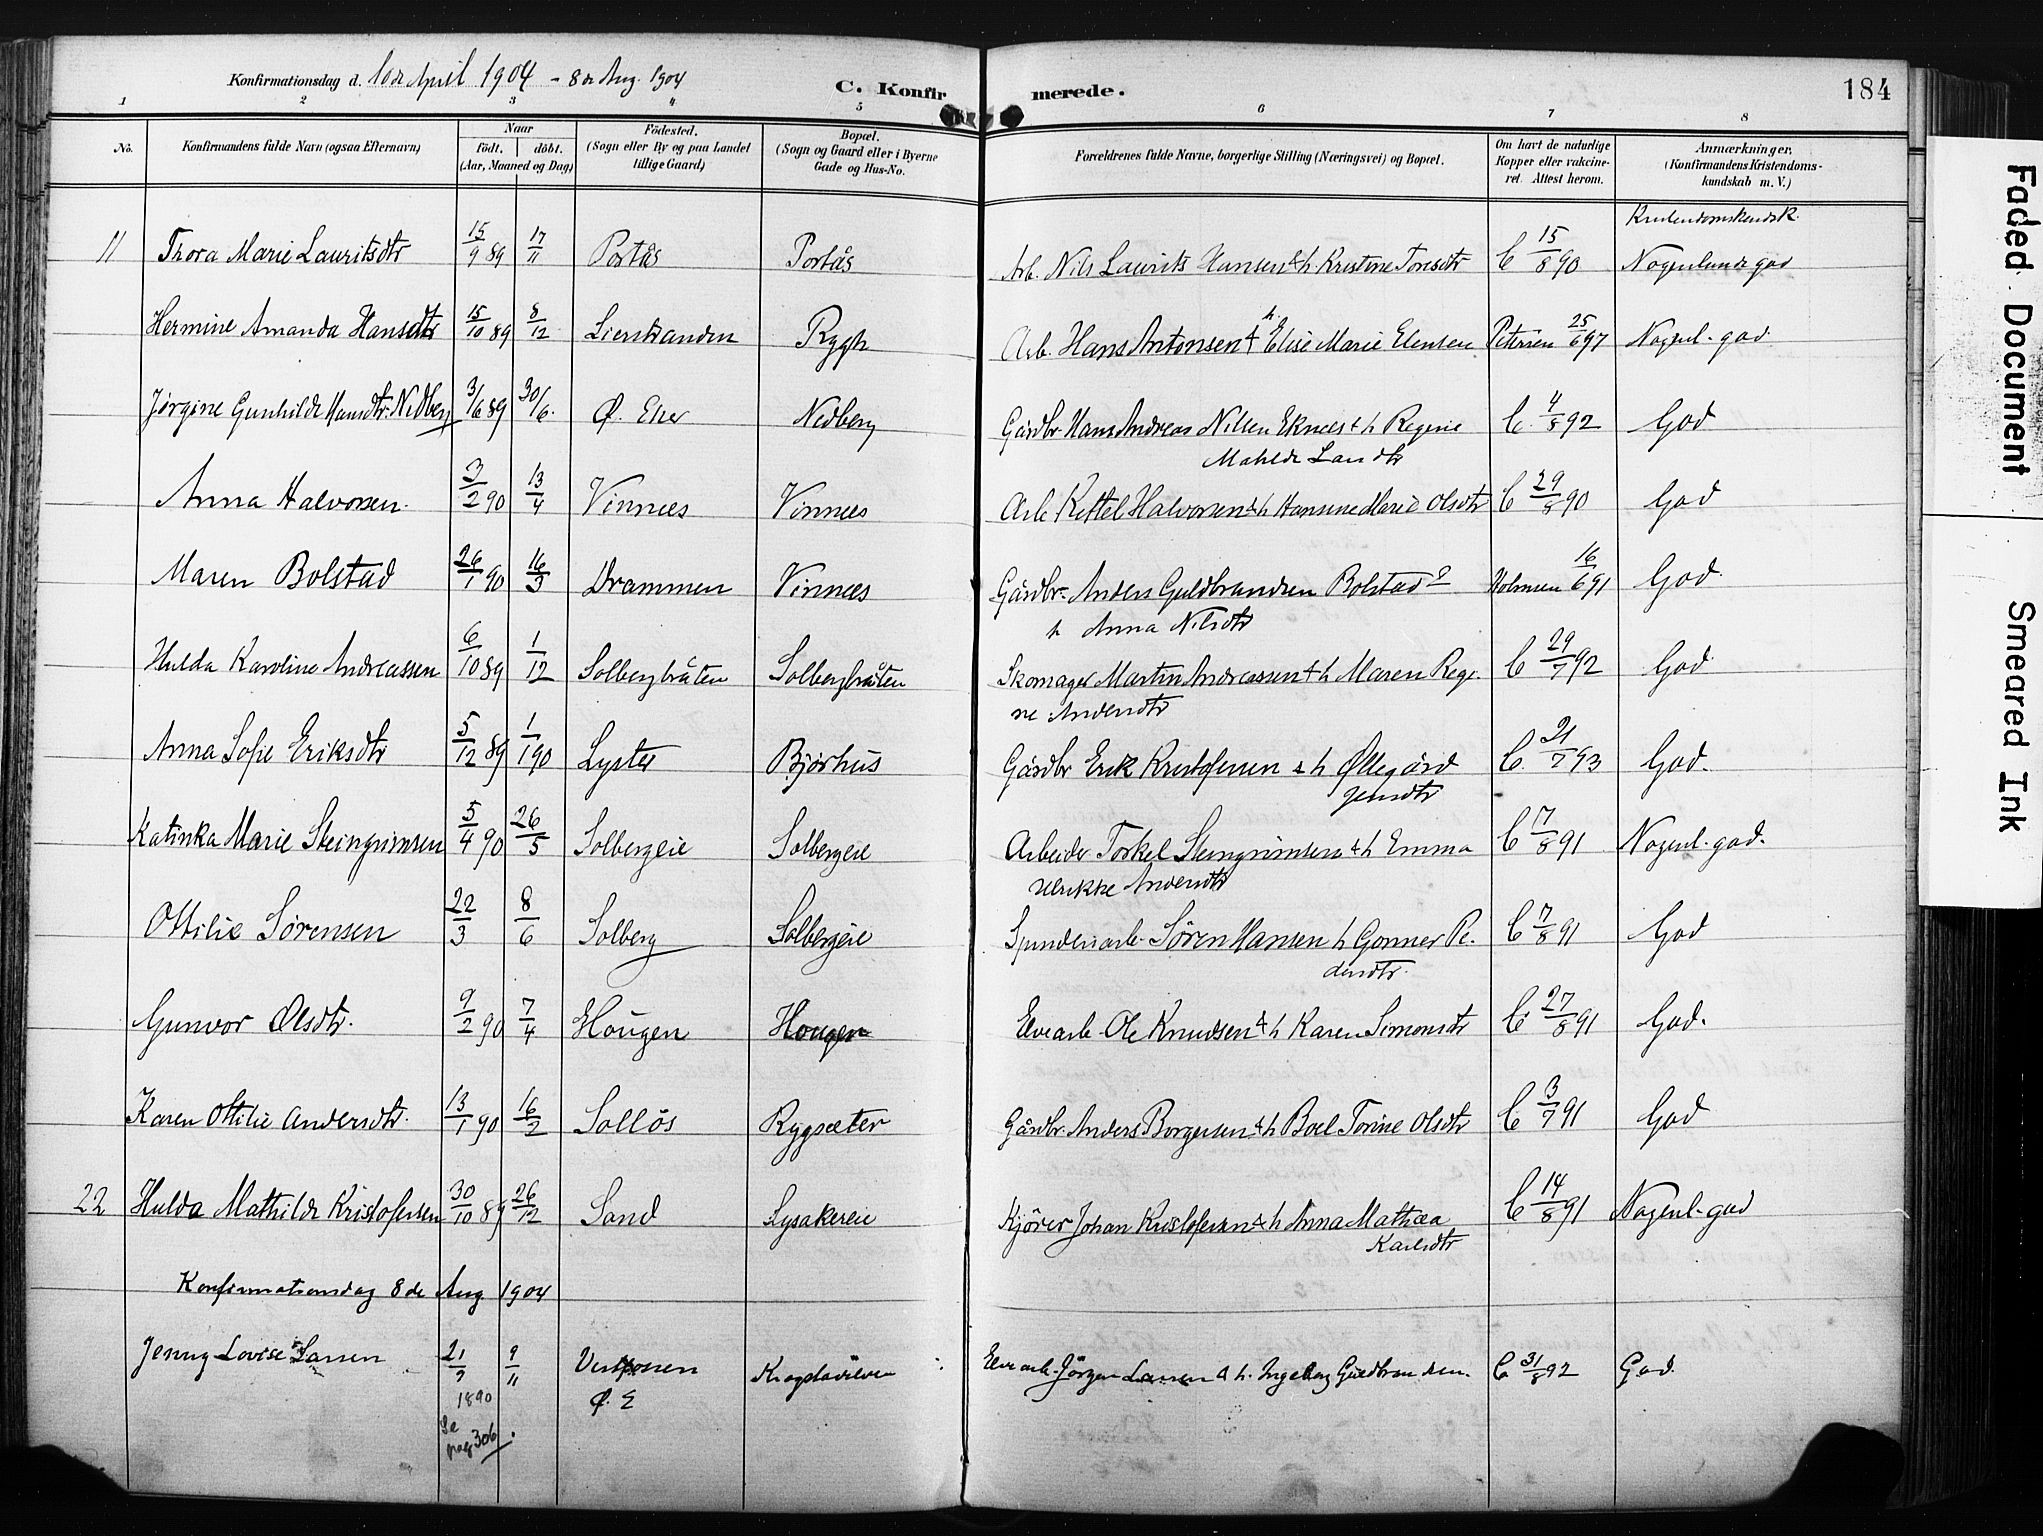 Konfirmationsdag d. 10de April 1904 - 8de Aug. 1904 C. Konfirmerede. 184
1 2 3 4 5 6 7 8
No. Konfirmandens fulde Navn (ogsaa Efternavn) Naar født. döbt. (Aar, Maaned og Dag) Födested. (Sogn eller By og paa Landet tillige Gaard) Bopæl. (Sogn og Gaard eller i Byerne Gade og Hus-No. Forældrenes fulde Navne, borgerlige Stilling (Næringsvei) og Bopæl. Om havt de naturlige Kopper eller vakcineret. Attest herom. Anmærkninger, (Konfirmandens Kristendomskundskab m. V.)
Kristendomskundsk.
11 Thora Marie Lauritsdtr 15/9 89 17/11 Portås Portås Arb. Nils Laurits Hansen & h Kristine Toresdtr C 15/8 90 Nogenlunde god
Hermine Amanda Hansdtr 15/10 89 8/12 Lierstranden Rygh Arb. Hans Antonsen & h Elise Marie Elensen Petersen 25/6 97 Nogenl. god
Jørgine Gunhilde Hansdtr. Nedberg 3/6 89 30/6. Ø. Eker Nedberg Gårdbr Hans Andreas Nilsen Eknees & h Regine C. 4/8 92 God
Mahilde Larsdtr
Anna Halvorsen. 3/2 90 13/4 Vinnæs Vinnæs Arb Kittel Halvorsen & h Hansine Marie Olsdtr C 29/8 90 God
Maren Bolstad 26/1 90 16/3 Drammen Vinnæs Gårdbr. Anders Guldbrandsen Bolstad & Holmsen 16/6 91 God.
h Anna Nilsdtr
Hulda Karoline Andreassen 6/10 89 1/12 Solbergbråten Solbergbråten Skomager Martin Andreassen & h Maren Rege- C 29/7 92 God.
ne Andersdtr
Anna Sofie Eriksdtr 5/12 89 1/1 90 Lyster Bjørhus Gårdbr Erik Kristofersen & h Øllegård C. 21/7 93 God.
Jensdtr
Katinka Marie Steingrimsen 5/4 90 26/5 Solbergeie Solbergeie Arbeider Torkel Steingrimsen & h Emma C 7/8 91 Nogenl. god.
Ulrikke Andersdtr
Ottilie Sørensen 22/3 8/6 Solberg Solbergeie Spinderiarb. Søren Hansen h Gonner Pe- C 7/8 91 God
dersdtr.
Gunvor Olsdtr. 9/2 90 7/4 Hougen Hougen Elvearb. Ole Knudsen & h Karen Simonsdtr C 27/8 91 God.
Karen Ottilie Andersdtr. 13/1 90 16/2 Solløs Rygsæter Gårdbr. Anders Borgersen & h Boel Torine Olsdtr C 3/7 91 God
22 Hulda Mathilde Kristofersen 30/10 89 26/12 Sand Lysakereie Kjører Johan Kristofersen & h Anna Mathea C 14/8 91 Nogenl. god
Karlsdtr
Konfirmationsdag 8de Aug. 1904
Jenny Lovise Larsen 21/9 9/11 Vestfossen Elvearb. Jörgen Larsen & h. Ingeborg Guldbrandsen. C 31/8 92 God.
1890 Ø. E
Se pag 306.
Faded Document
Smeared Ink